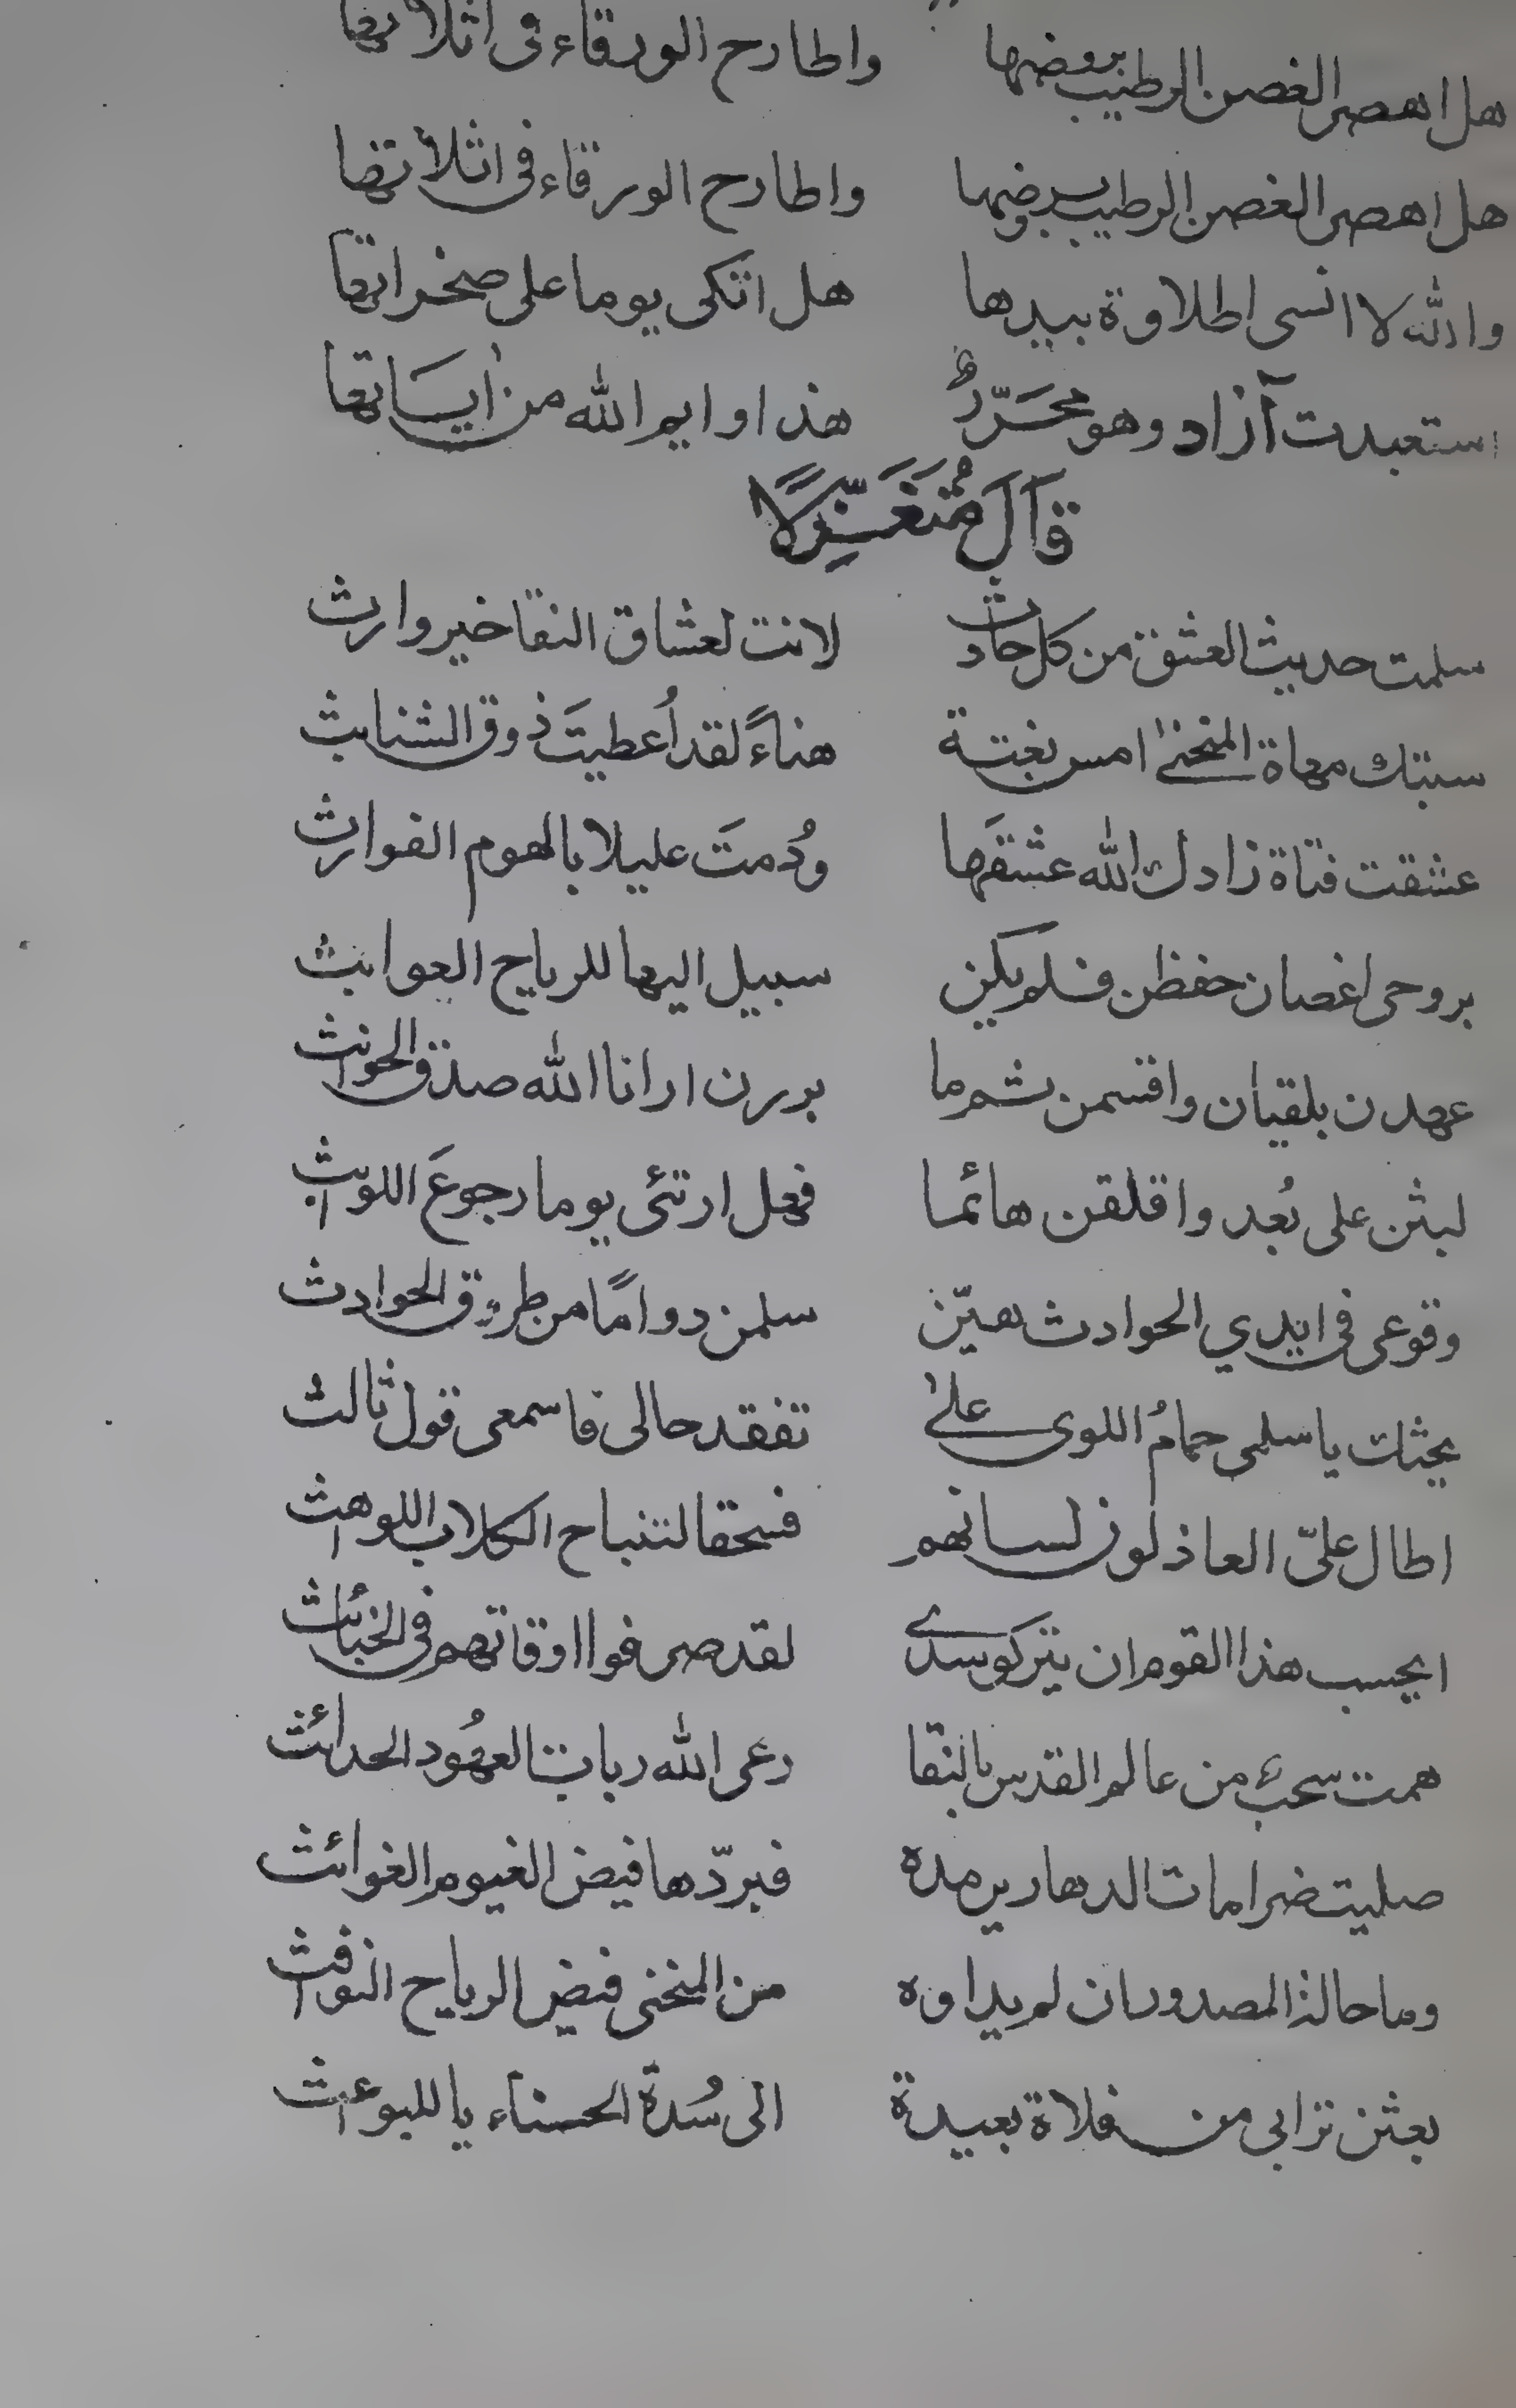 هل اهصر الغصن الرطيب بروضها واطارح الورقاء فى اثلاتها
هل اهصر الغصن الرطيب بروضها واطارح الورقاء فى اثلاتها
والله لا انسى اطلاوة ببيدها هل اتكى يوما على صخراتها
استعبدت آزاد وهو محَرّرٌ هذا وايم الله من أيسَاتها
قَالَ مُتَغَزِّلًا
سلمت حديث العشق من كل حادث لانت لعشاق النقا خير وارث
سبتك مهاة المنحنىٰ امس بغتة هناءً لقد أُعطيتَ ذوق الشنابث
عشقت فتاة زادك الله عشقَها ودُمتَ عليلا بالهموم الفوارث
بروحى اغصان حفظن فلم يكن سبيل اليها للرياح العوابث
عهدن بلقيان واقسمن ثم ما بررن ارانا الله صدق الحوانث
لبثن على بُعد واقلقن هائما فهل ارتئى يوما رجوعَ اللوابث
وقوعى فى ايدي الحوادث هيّن سلمن دوامًا من طروق الحوادث
يحثك يا سلمى حمامُ اللوى علىٰ تفقد حالى فاسمعى قول ثالث
اطال علىّ العاذلون لسانهم فسحقا لتنباح الكلاب اللواهث
ايحسب هذا القوم ان يتركو سدى لقد صرفوا اوقاتهم فى الخبائث
همت سحبٌ من عالم القدس بالنقا رعى الله ربات العهُود الحدائث
صليت ضرامات الدهارير مدة فبرّدها فيض الغيوم الغوائث
وما حال ذا المصدور ان لم يداوه من المنحنى فيض الرياح النوافث
بعثن ترابى من فلاة بعيدة الى سُدة الحسناء يا للبواعث